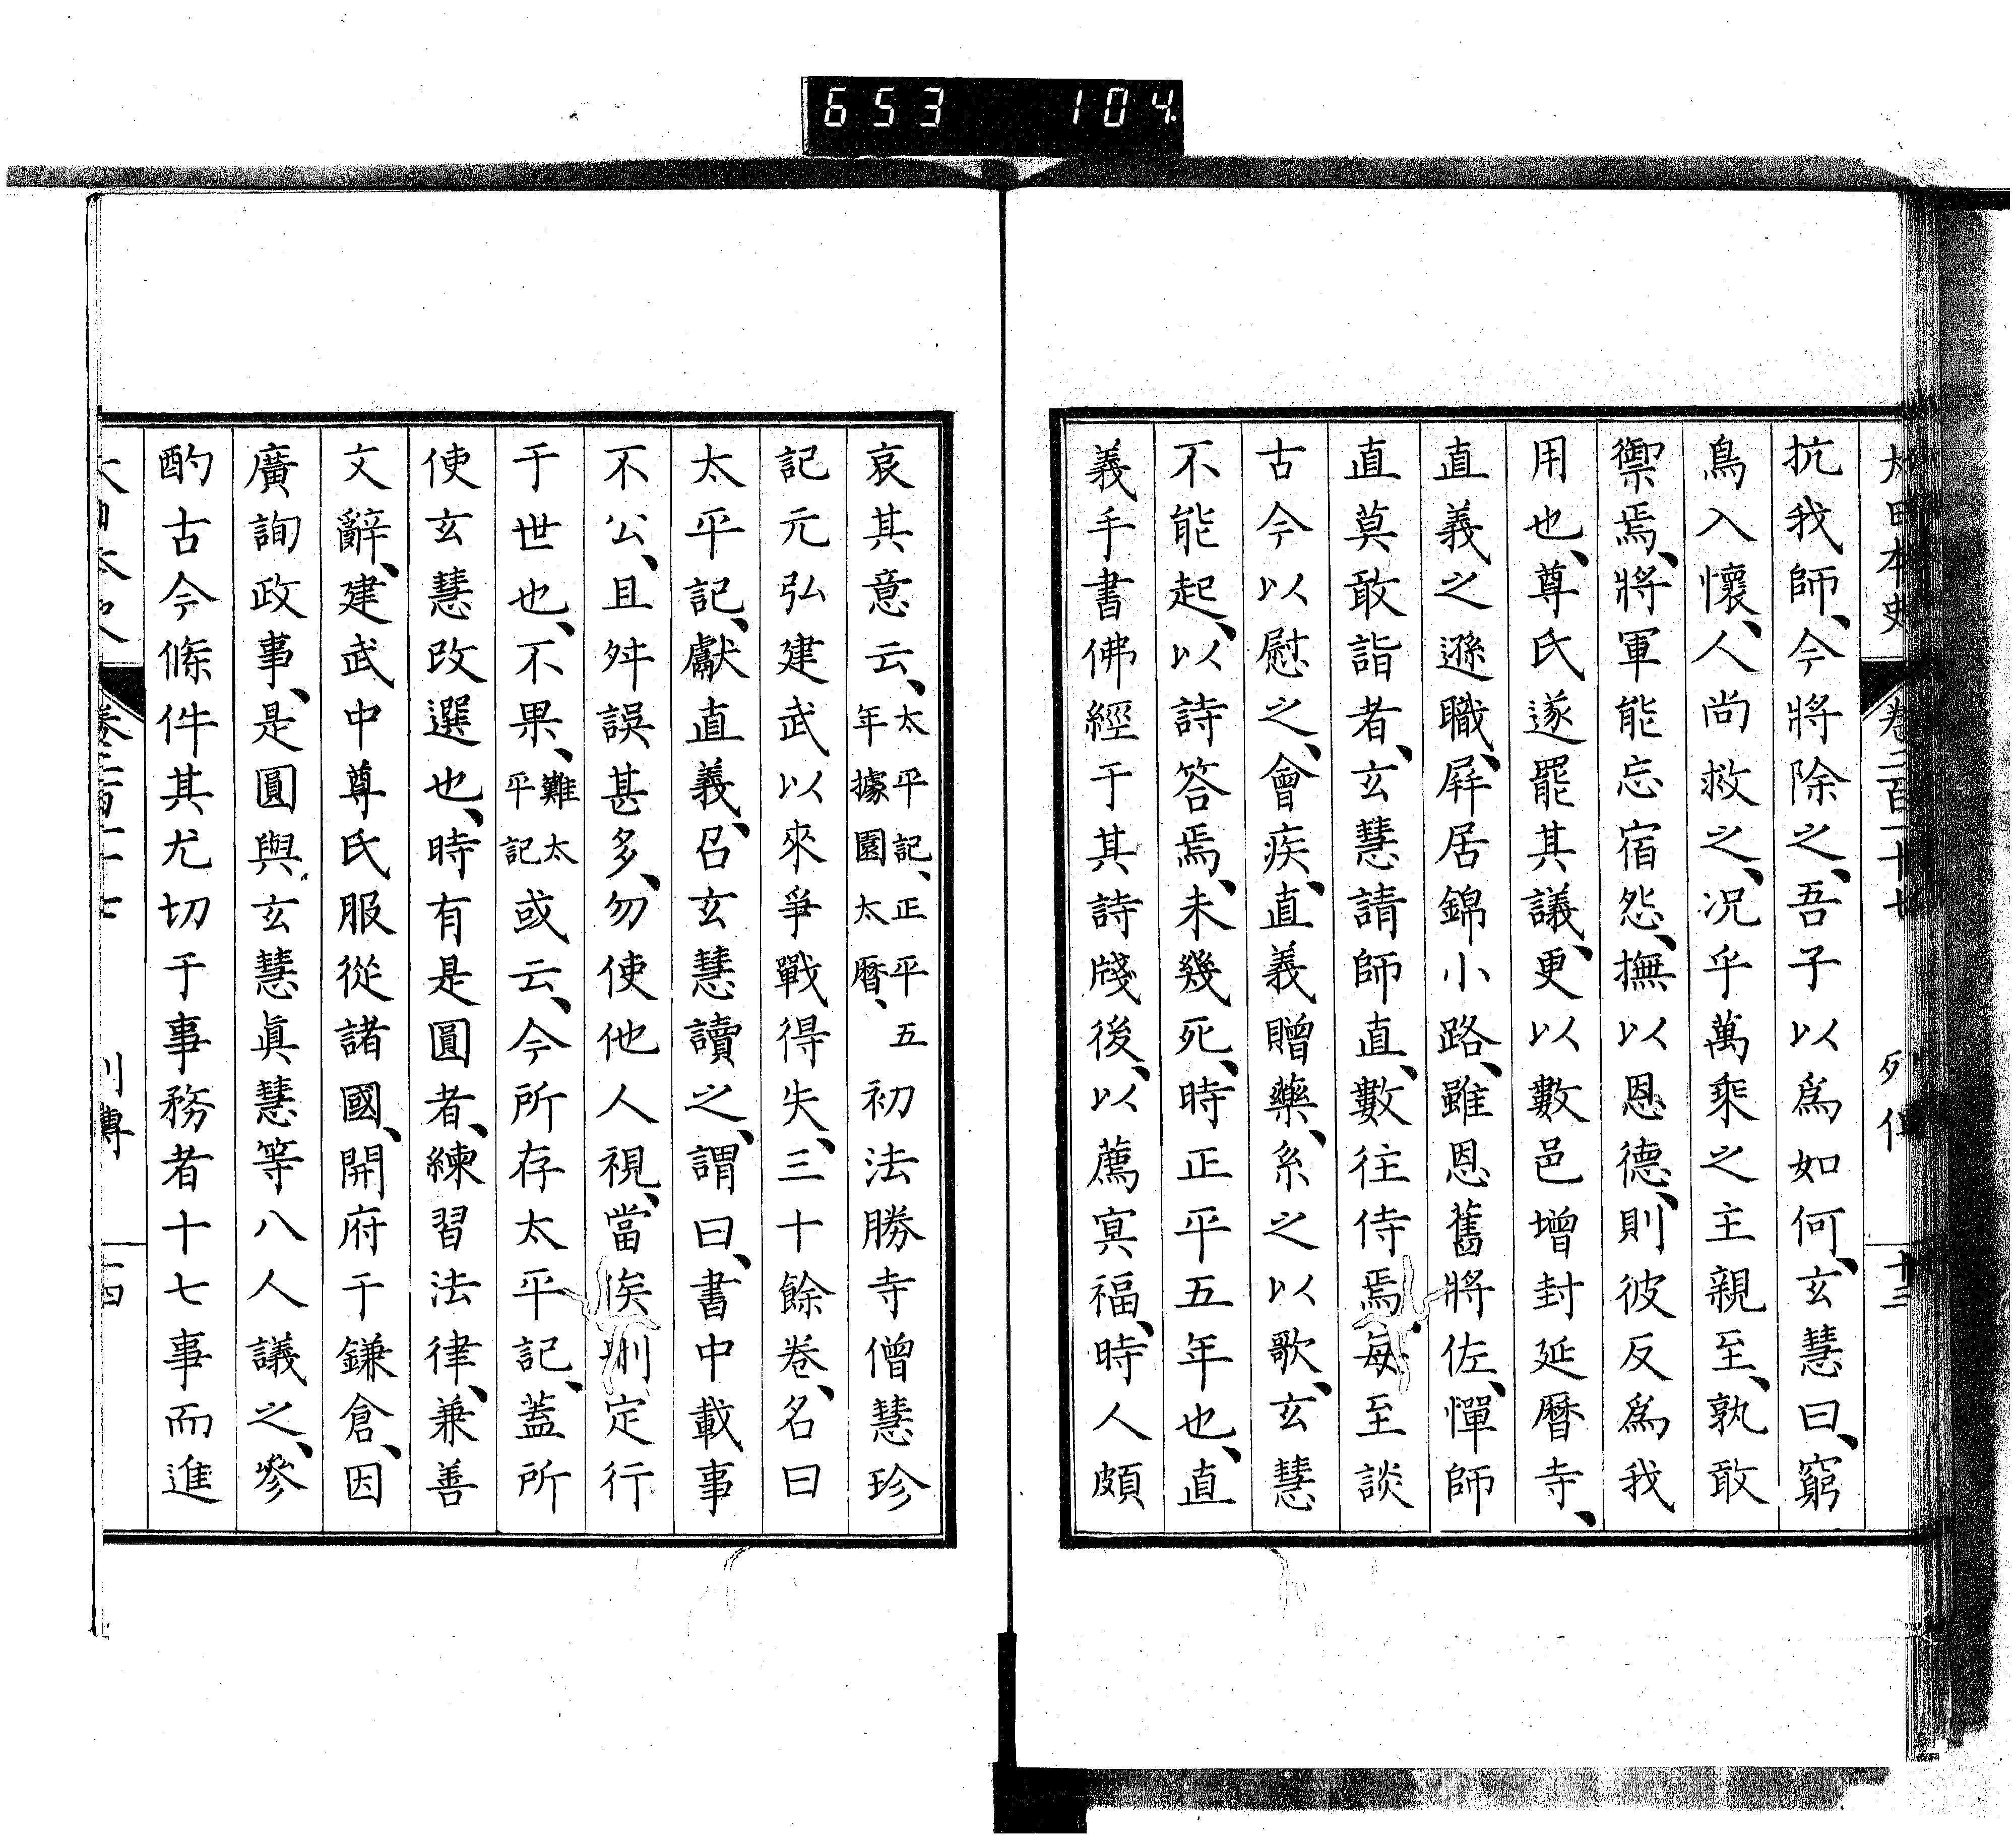 653 104
大日本史 卷二百一十七 列傳 十三
抗我師、今將除之、吾子以爲如何、玄慧曰、窮
鳥入懷、人尚救之、况乎萬乘之主親至、孰敢
禦焉、將軍能忘宿怨、撫以恩德、則彼反爲我
用也、尊氏遂罷其議、更以數邑增封延曆寺、
直義之遜職、屛居錦小路、雖恩舊將佐、憚師
直莫敢詣者、玄慧請師直、數往侍焉、每至談
古今以慰之、會疾、直義贈藥、系之以歌、玄慧
不能起、以詩答焉、未幾死、時正平五年也、直
義手書佛經于其詩牋後、以薦冥福、時人頗
哀其意云、太平記、正平五年據園太曆、初法勝寺僧慧珍
記元弘建武以來爭戰得失、三十餘卷、名曰
太平記、獻直義、召玄慧讀之、謂曰、書中載事
不公、且舛誤甚多、勿使他人視、當俟刪定行
于世也、不果、難太平記或云、今所存太平記、蓋所
使玄慧改選也、時有是圓者、練習法律、兼善
文辭、建武中尊氏服從諸國、開府于鎌倉、因
廣詢政事、是圓與玄慧眞慧等八人議之、參
酌古今條件其尤切于事務者十七事而進
大日本史 卷二百一十七 列傳 十四